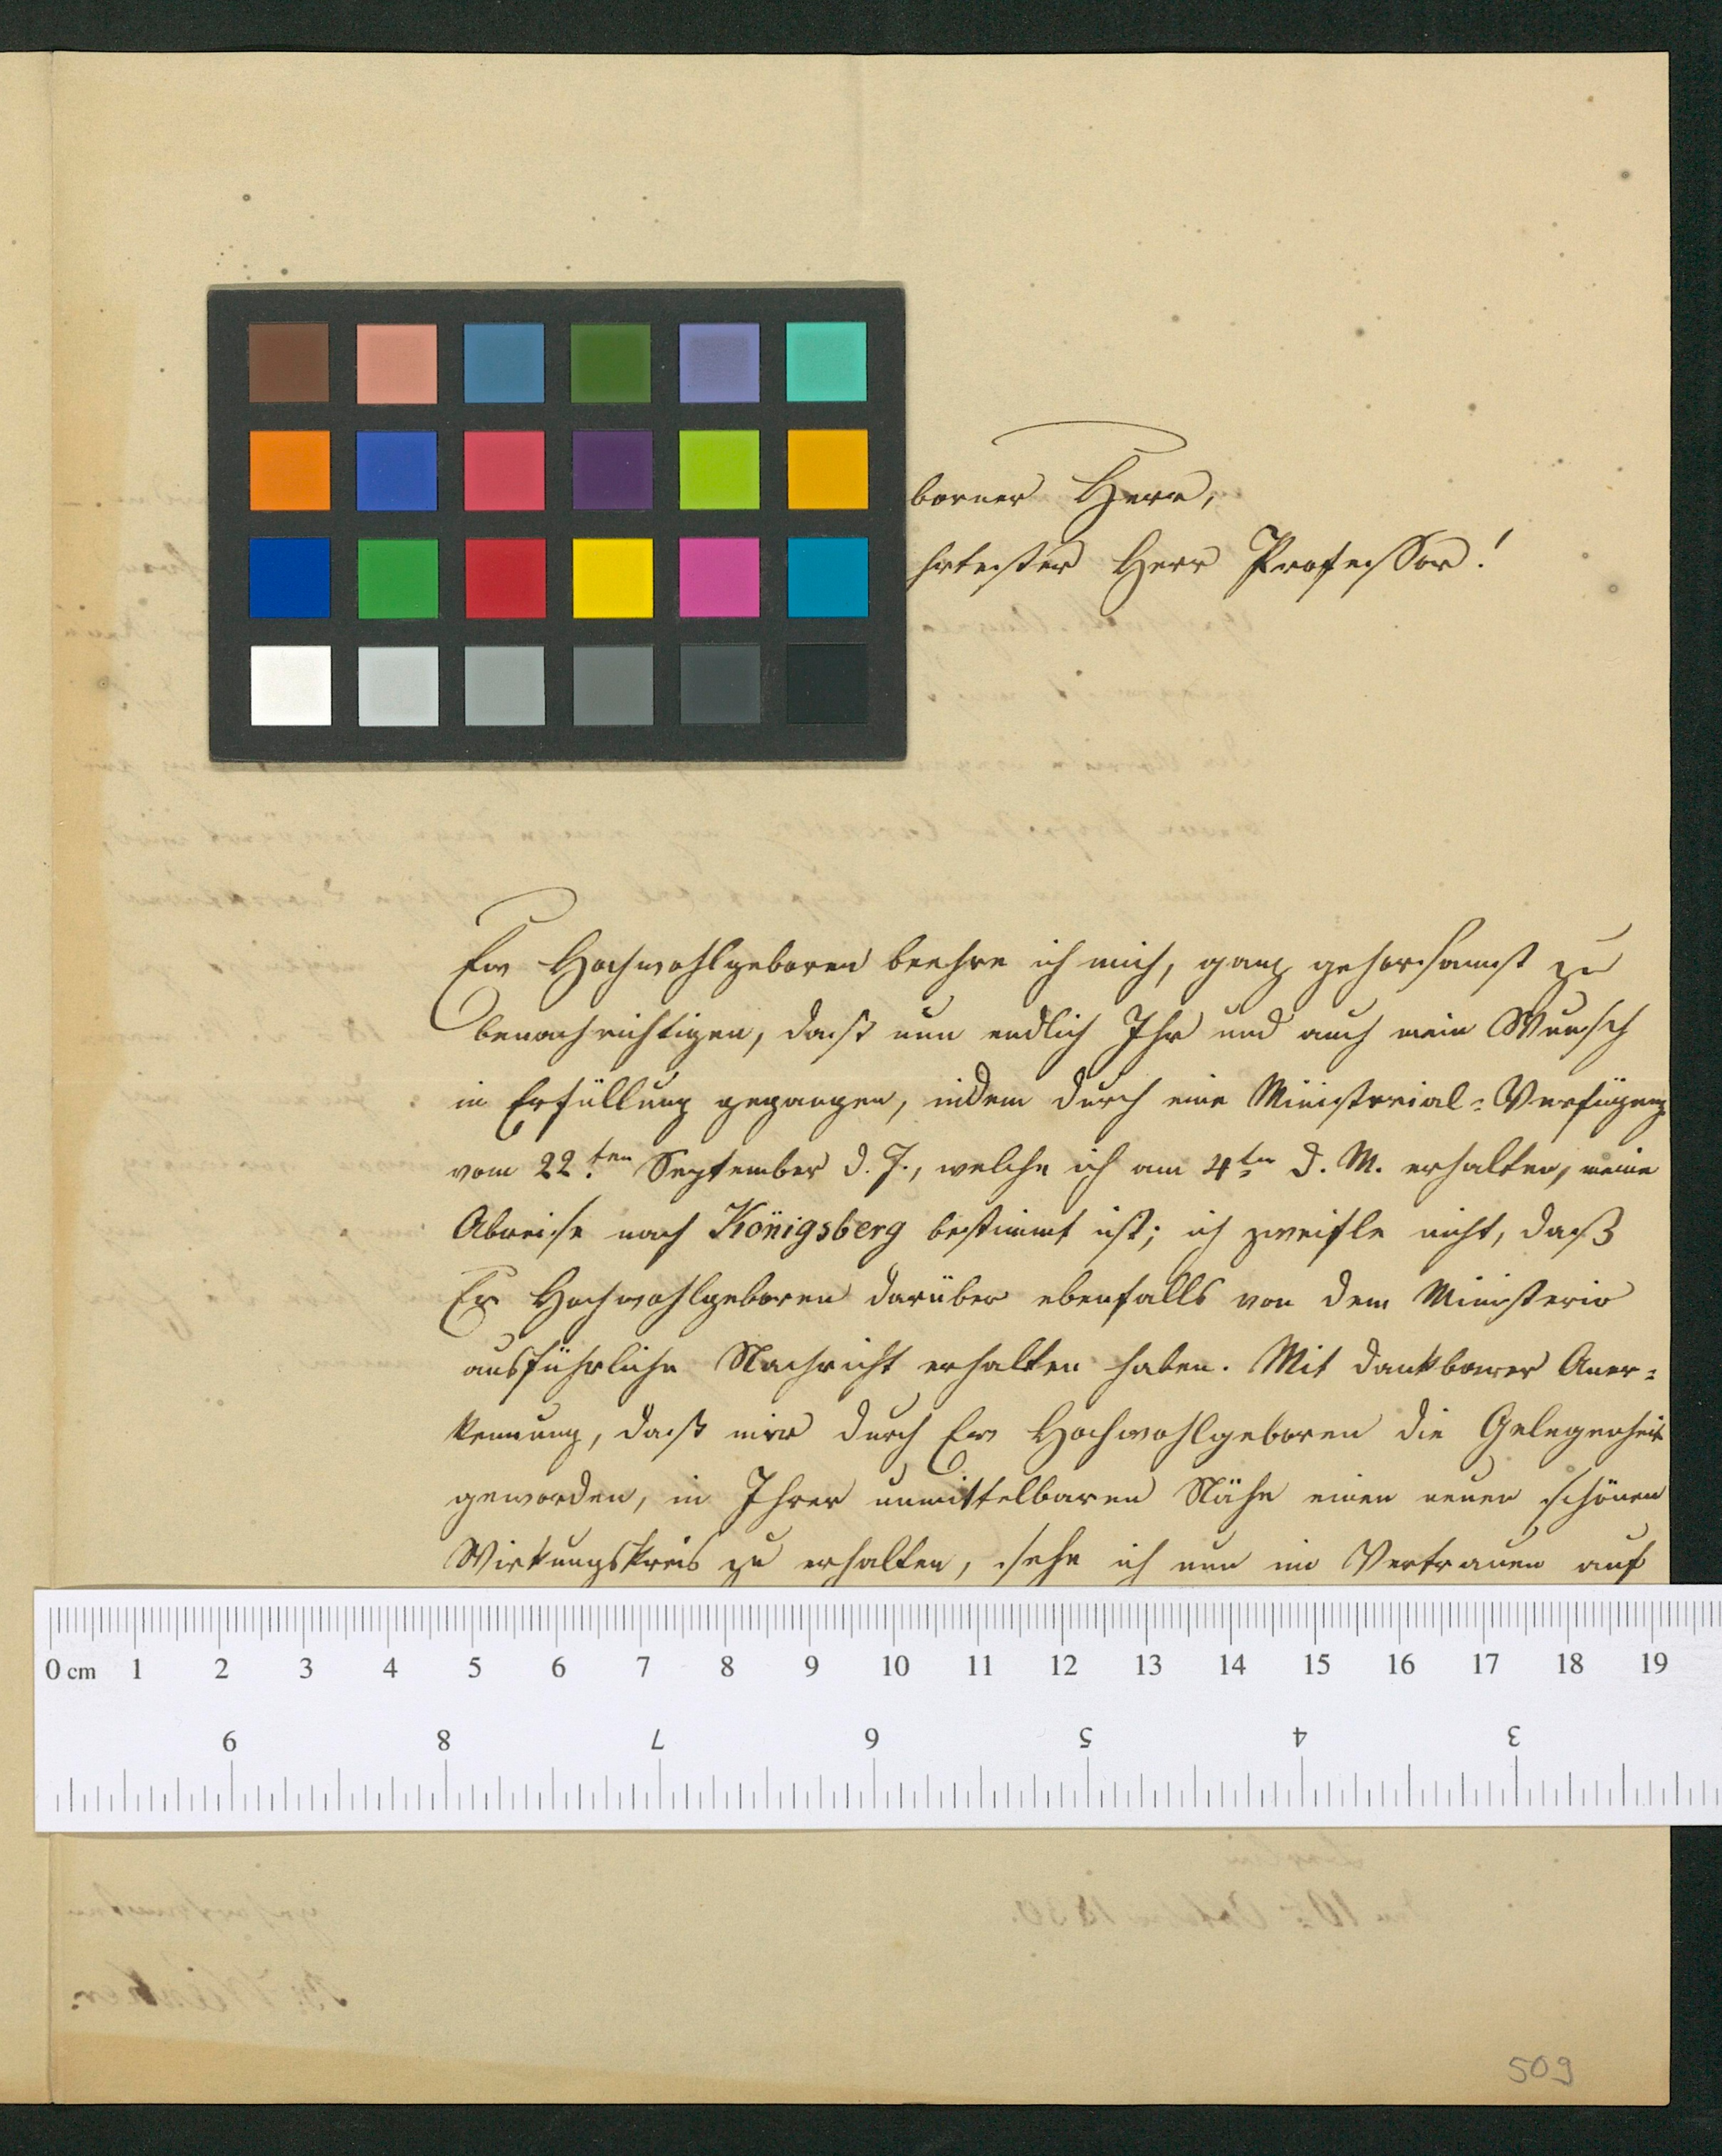 borner Herr,
hrtester Herr Professor!
Ew Hochwohlgeboren beehre ich mich, ganz gehorsamst zu
benachrichtigen, daß nun endlich Ihr und auch mein Wunsch
in Erfüllung gegangen, indem durch eine Ministerial-Verfügung
vom 22ten September d. J., welche ich am 4ten d. M. erhalten, meine
Abreise nach Königsberg bestimmt ist; ich zweifle nicht, daß
Ew Hochwohlgeboren darüber ebenfalls von dem Ministerio
ausführliche Nachricht erhalten haben. Mit dankbarer Aner-
kennung, daß mir durch Ew Hochwohlgeboren die Gelegenheit
geworden, in Ihrer unmittelbaren Nähe einen neuen schönen
Wirkungskreis zu erhalten, sehe ich nun im Vertrauen auf
0 cm 1 2 3 4 5 6 7 8 9 10 11 12 13 14 15 16 17 18 19
9 8 7 6 5 4 3
509